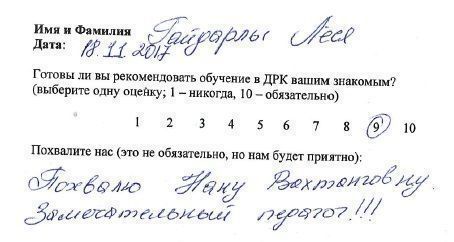 Имя и Фамилия Гайдарлы Леся
Дата: 18.11.2017
Готовы ли вы рекомендовать обучение в ДРК вашим знакомым?
(выберите одну оценку; 1 – никогда, 10 – обязательно)
1 2 3 4 5 6 7 8 9 10
Похвалите нас (это не обязательно, но нам будет приятно):
Похвалю Нану Вахтанговну.
Замечательный педагог!!!